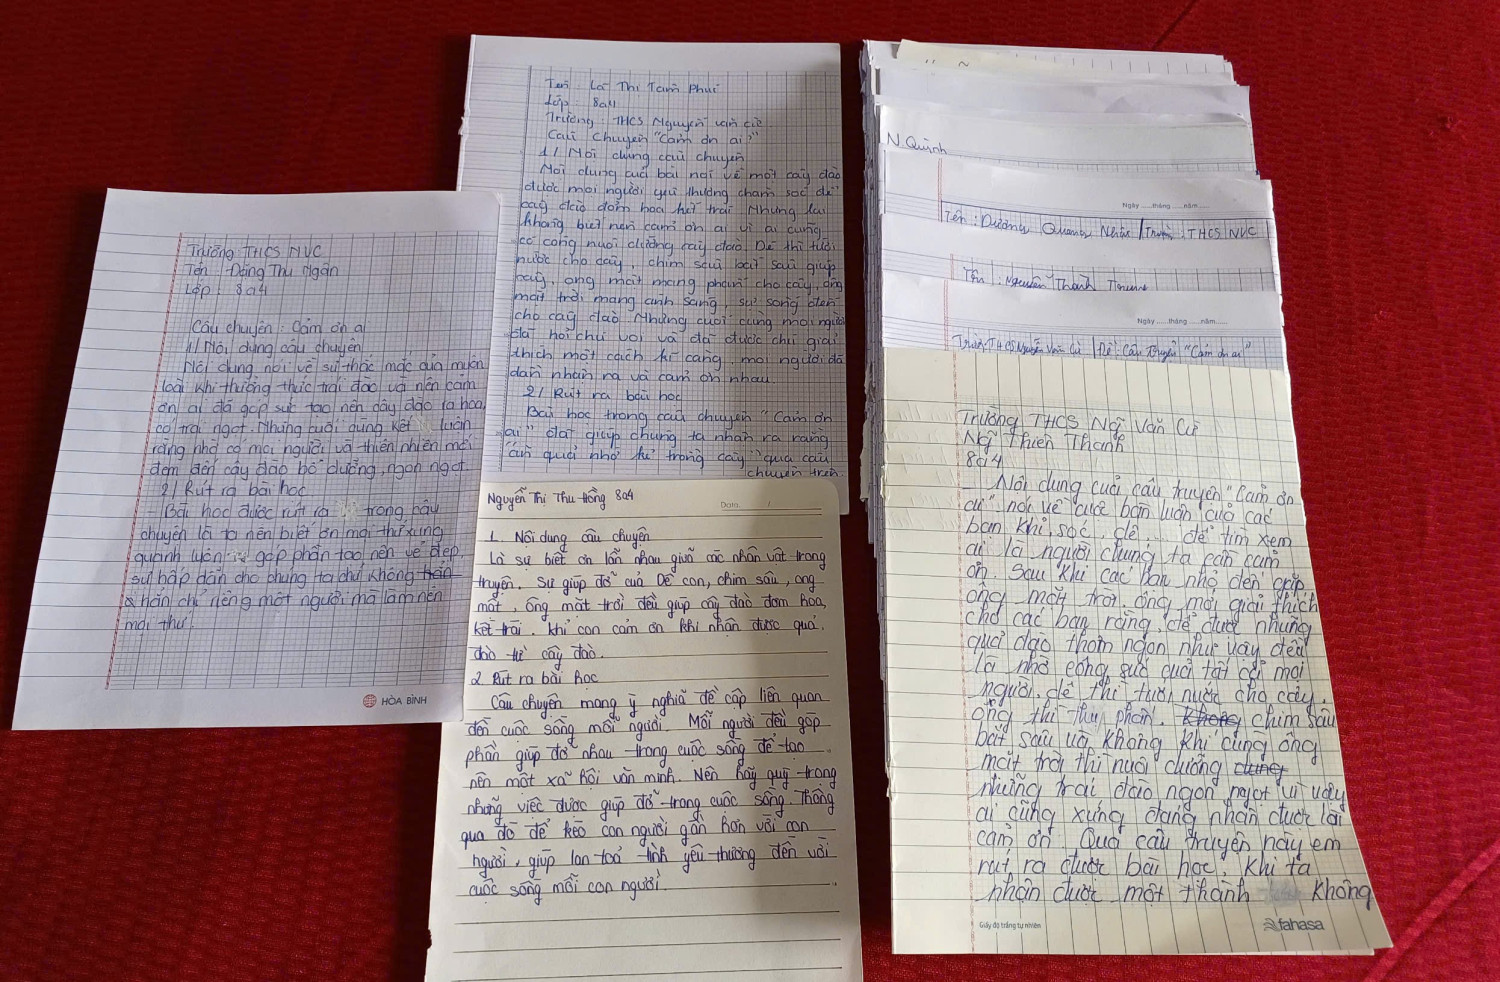 Trường: THCS NVC
Tên : Đặng Thu Ngân
Lớp : 8a4
Câu chuyện : Cảm ơn ai
1/ Nội dung câu chuyện
Nội dung nói về sự thắc mắc của muôn
loài khi thưởng thức trái đào và nên cảm
ơn ai đã góp sức tạo nên cây đào ra hoa,
có trái ngọt. Nhưng cuối cùng kết luận
rằng nhờ có mọi người và thiên nhiên mới
đem đến cây đào bổ dưỡng, ngon ngọt.
2/ Rút ra bài học
- Bài học được rút ra trong câu
chuyện là ta nên biết ơn mọi thứ xung
quanh luôn góp phần tạo nên vẻ đẹp,
sự hấp dẫn cho chúng ta chứ không
hẳn chỉ riêng một người mà làm nên
mọi thứ.
HÒA BÌNH
Tên : Lê Thị Tâm Phúc
Lớp : 8a4
Trường : THCS Nguyễn văn cừ
Câu chuyện "Cảm ơn ai?"
1/ Nội dung câu chuyện
Nội dung của bài nói về một cây đào
được mọi người yêu thương chăm sóc để
cây đào đơm hoa kết trái. Nhưng lại
không biết nên cảm ơn ai vì ai cũng
có công nuôi dưỡng cây đào. Dế thì tưới
nước cho cây, chim sâu bắt sâu giúp
cây, ong mật mang phấn cho cây, ông
mặt trời mang ánh sáng, sự sống đến
cho cây đào. Nhưng cuối cùng mọi người
đã hỏi chú voi và đã được chú giải
thích một cách kĩ càng, mọi người đã
dần nhận ra và cảm ơn nhau.
2/ Rút ra bài học
Bài học trong câu chuyện "Cảm ơn
ai" đã giúp chúng ta nhận ra rằng
"ăn quả nhớ kẻ trồng cây" qua câu
chuyện trên.
Nguyễn Thị Thu Hồng 8a4
Date /
1. Nội dung câu chuyện
Là sự biết ơn lẫn nhau giữa các nhân vật trong
truyện. Sự giúp đỡ của Dế con, chim sâu, ong
mật, ông mặt trời đều giúp cây đào đơm hoa,
kết trái. Khỉ con cảm ơn khi nhận được quả
đào từ cây đào.
2. Rút ra bài học
Câu chuyện mang ý nghĩa đề cập liên quan
đến cuộc sống mỗi người. Mỗi người đều góp
phần giúp đỡ nhau trong cuộc sống để tạo
nên một xã hội văn minh. Nên hãy quý trọng
những việc được giúp đỡ trong cuộc sống. Thông
qua đó để kéo con người gần hơn với con
người, giúp lan toả tình yêu thương đến với
cuộc sống mỗi con người.
N. Quỳnh
Ngày ......tháng ......năm ......
Tên : Dương Quang Nhân Trường : THCS NVC
Tên : Nguyễn Thành Trung
Ngày ......tháng ......năm ......
Trường: THCS Nguyễn Văn Cừ Đề: Câu truyện "Cảm ơn ai"
Trường THCS Ng~ Văn Cừ
Ng~ Thiên Thanh
8a4
- Nội dung của câu truyện "Cảm ơn
ai" nói về cuộc bàn luận của các
bạn khỉ, sóc, dê, ... để tìm xem
ai là người chúng ta cần cảm
ơn. Sau khi các bạn nhờ đến giúp
ông mặt trời ông mới giải thích
cho các bạn rằng, để được những
quả đào thơm ngon như vậy đều
là nhờ công sức của tất cả mọi
người, dế thì tưới nước cho cây
ong thì thụ phấn. Không chim sâu
bắt sâu và không khí cùng ông
mặt trời thì nuôi dưỡng
những trái đào ngon ngọt vì vậy
ai cũng xứng đáng nhận được lời
cảm ơn. Qua câu truyện này em
rút ra được bài học, khi ta
nhận được một thành không
Giấy độ trắng tự nhiên
fahasa